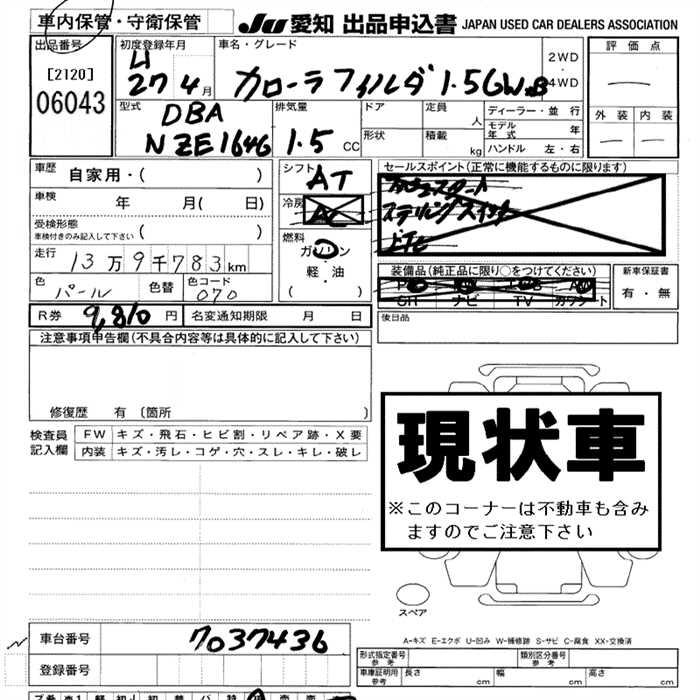 車内保管・守衛保管
JU 愛知 出品申込書 JAPAN USED CAR DEALERS ASSOCIATION
出品番号
[2120]
06043
初度登録年月
H
27 4 月
車名・グレード
カローラフィルダ 1.5G W.B
2WD
4WD
評価点
外装 内装
型式
DBA
NZE164G
排気量
1.5 CC
ドア
形状
定員
人
積載
kg
ディーラー・並行
モデル年式 年
ハンドル 左・右
車歴 自家用・( )
車検 年 月( 日)
受検形態
車検付きのみ記入して下さい ( )
走行 13万9千783km
色 パール 色替 色コード 070
R券 9,810 円 名変通知期限 月 日
シフト AT
冷房 AC
燃料
ガソリン
軽・油
( )
セールスポイント(正常に機能するものに限ります)
ステリングスイッチ
ETC
装備品(純正品に限り○をつけてください)
SR ナビ TV カワシート
新車保証書
有・無
後日品
注意事項申告欄(不具合内容等は具体的に記入して下さい)
修復歴 有〔箇所 〕
検査員記入欄
FW キズ・飛石・ヒビ割・リペア跡・X要
内装 キズ・汚レ・コゲ・穴・スレ・キレ・破レ
現状車
※このコーナーは不動車も含みますのでご注意下さい
スペア
A-キズ E-エクボ U-凹み W-補修跡 S-サビ C-腐食 XX-交換済
車台番号 7037436
登録番号
形式指定番号 参考
類別区分番号 参考
車庫証明用 参考
長さ cm 幅 cm 高さ cm